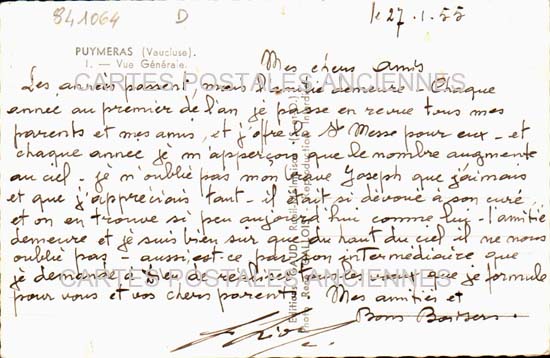 841064 D le 27.1.55
PUYMERAS (Vaucluse).
1. — Vue Générale.
Mes chers amis
CARTES POSTALES ANCIENNES
Les années passent, mais l'amitié demeure. Chaque
année au premier de l'an je passe en revue tous mes
parents et mes amis, et j'offre la Ste Messe pour eux - et
chaque année je m'aperçois que le nombre augmente
au ciel - je n'oublie pas mon brave Joseph que j'aimais
et que j'appréciais tant - il était si dévoué à son curé
et on en trouve si peu aujourd'hui comme lui - l'amitié
demeure et je suis bien sur que du haut du ciel il ne nous
oublie pas - aussi est ce par son intermédiaire que
je demande à Dieu de réaliser tous les vœux que je formule
CARTES POSTALES ANCIENNES
pour vous et vos chers parents. Mes amitiés et
Bons Baisers.